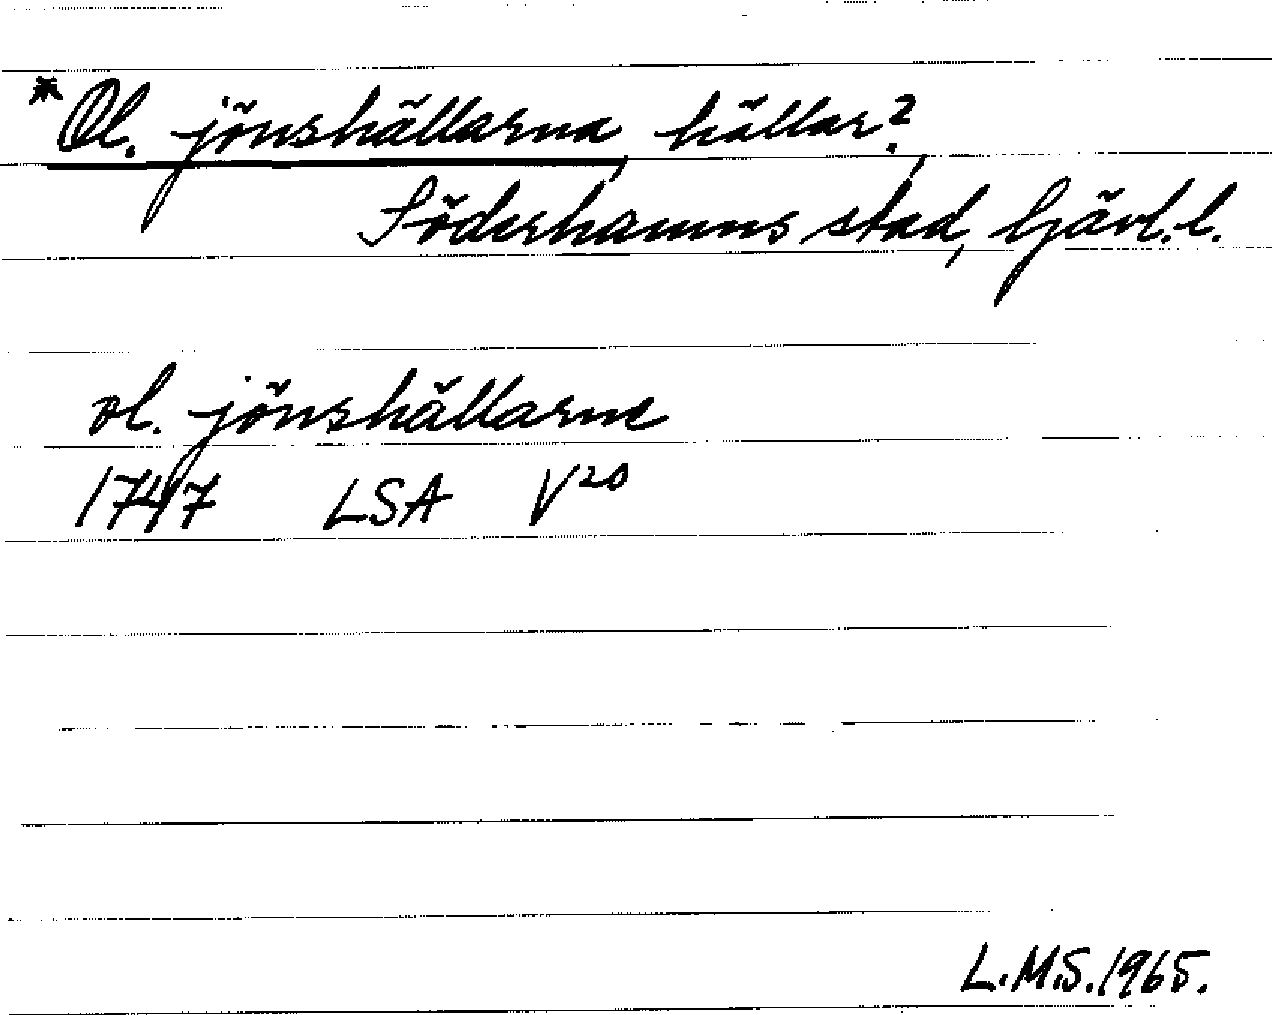 *Ol. jönshällarna, hällar?,
Söderhamns stad, Gävl.l.
ol. jönshällarne
1747 LSA V20
L.M.S.1965.